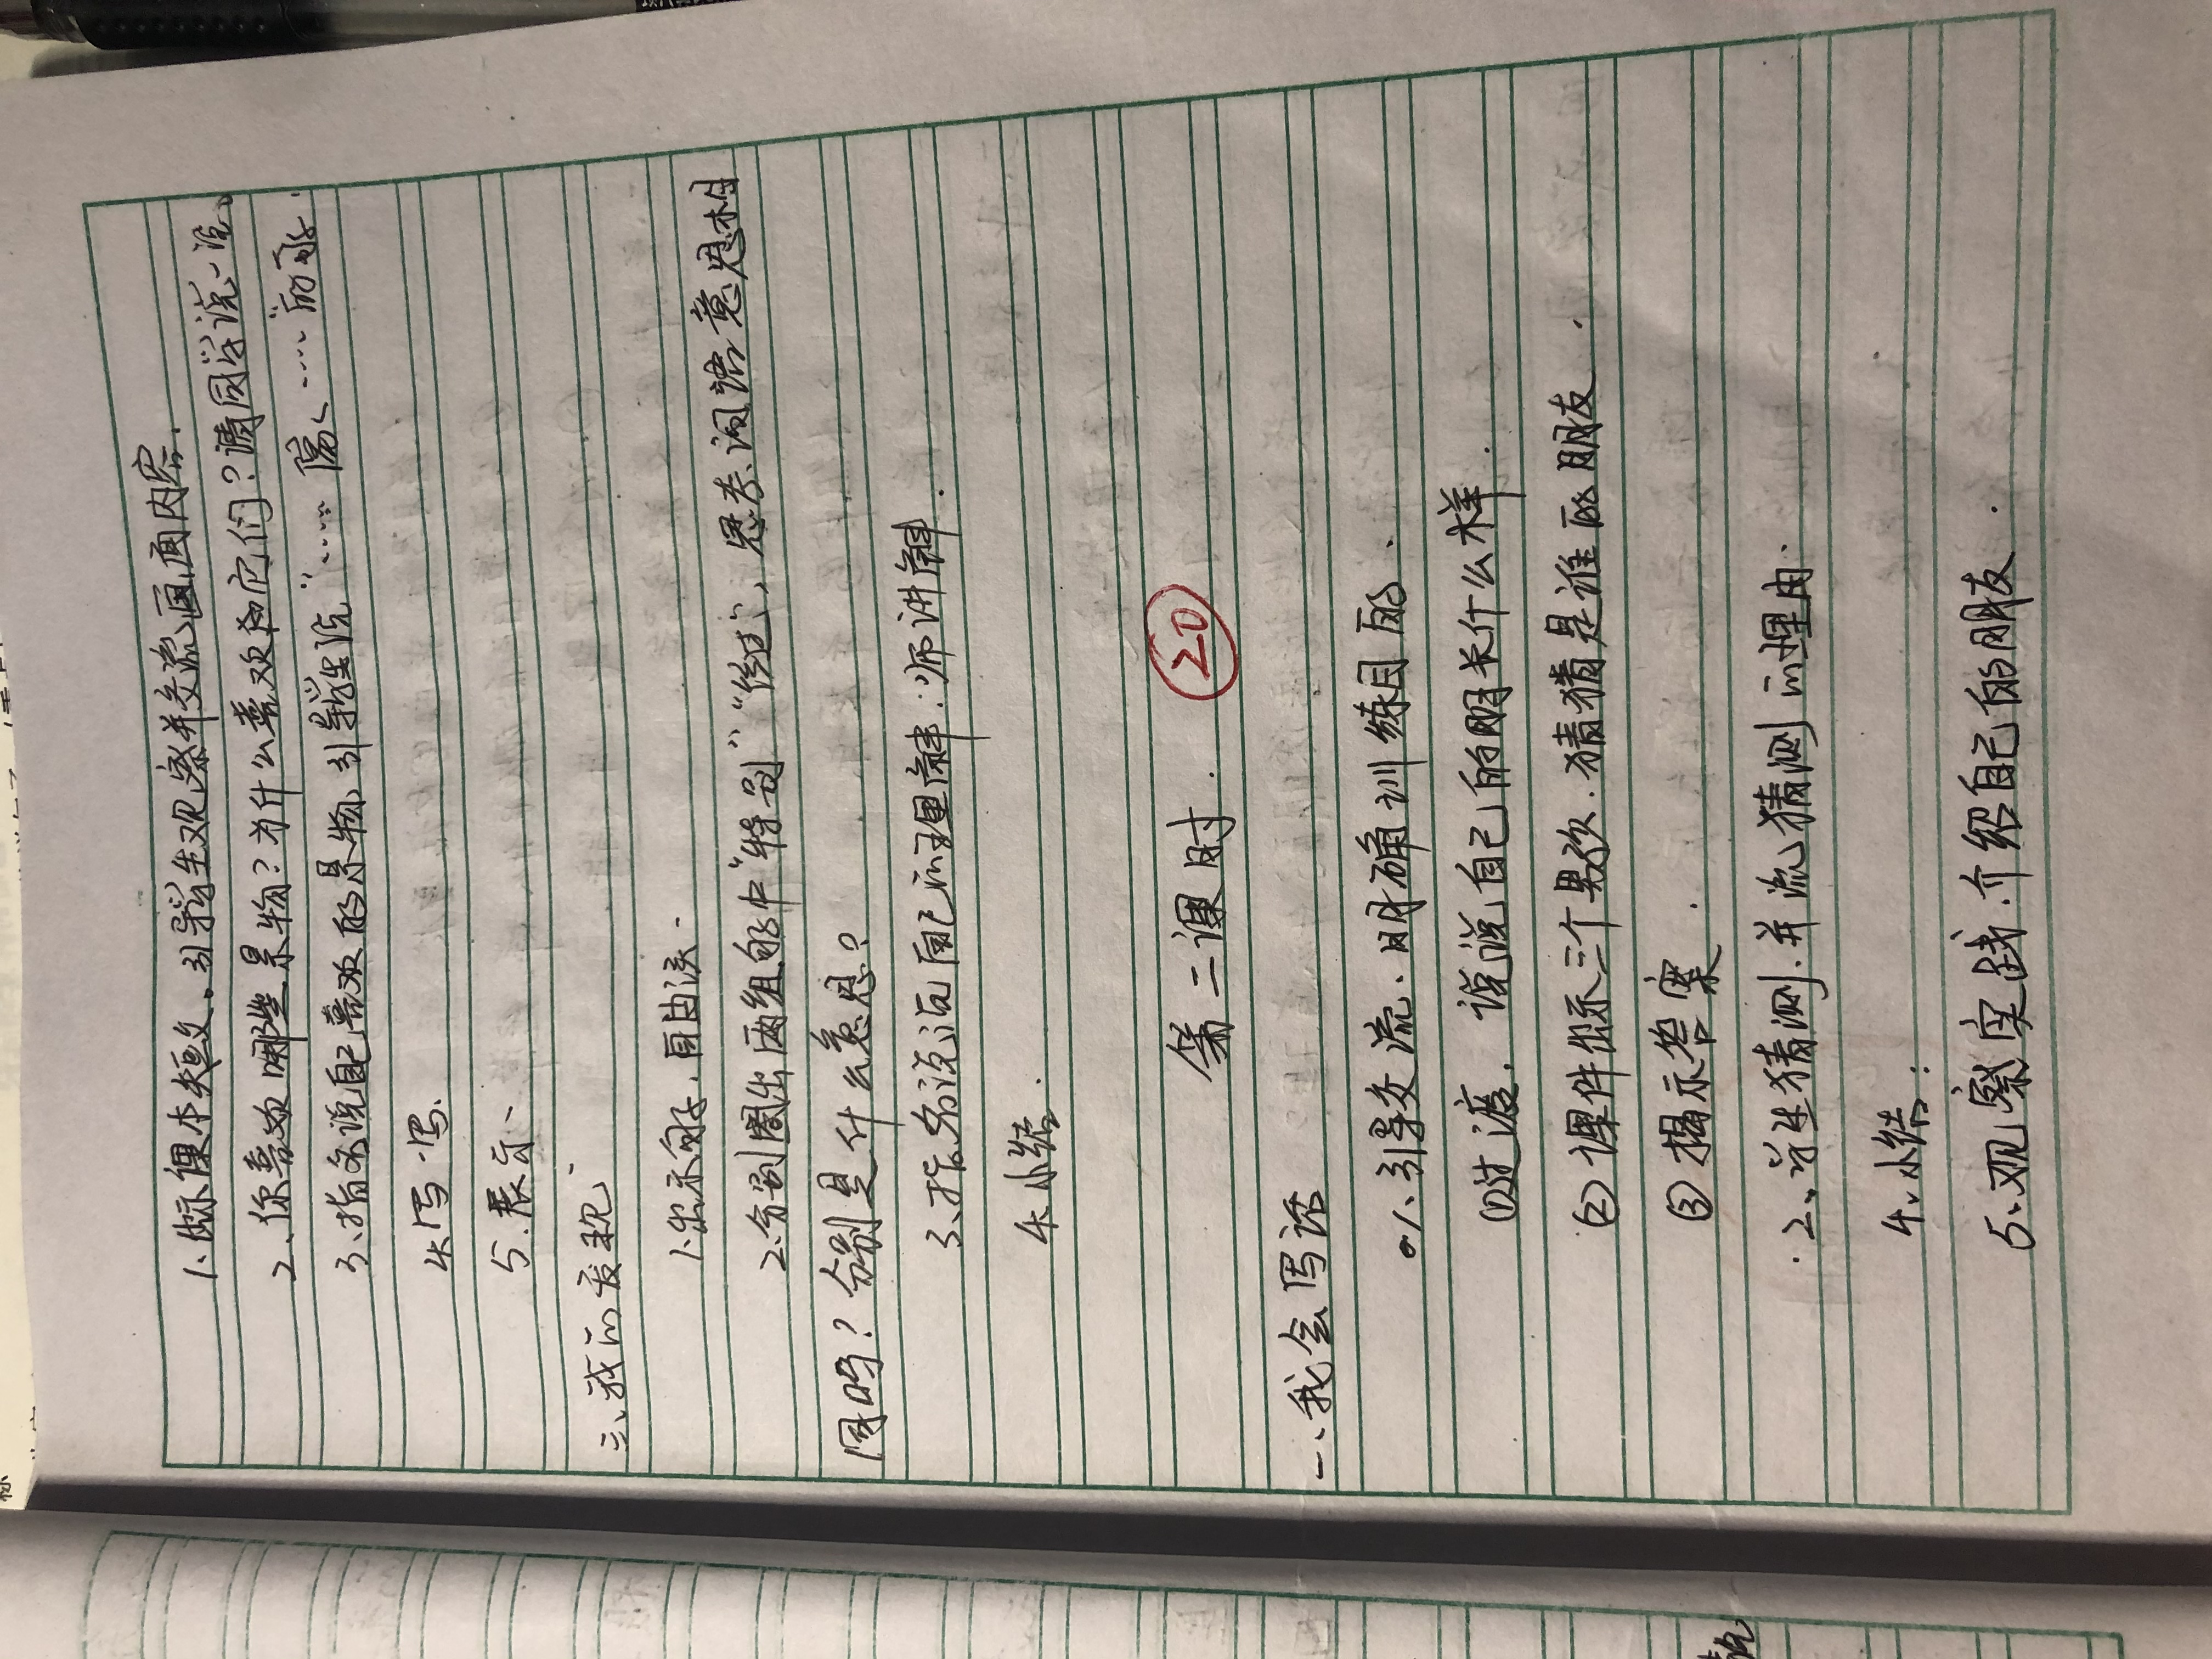 1、出示课本插图、引导学生观察并交流画面内容.
2、你喜欢哪些景物?为什么喜欢它们?请同学说一说、
3、指名说自己喜欢的景物、引导学生说"……像……"的句子.
4、写一写、
5、展示、
三、我的发现、
1、出示句子、自由读.
2、分别圈出两组句中"特别""经过",思考词语意思相
同吗?分别是什么意思?
3、指名说说自己的理解.师讲解.
4、小结.
第二课时.
20
一、我会写话
1、引导交流、明确训练目的.
①过渡.说说自己的朋长什么样.
②课件出示三个男孩.猜猜是谁的朋友.
③揭示答案.
2、学生猜测.并流猜测的理由.
4、小结:
5、观察实践.介绍自己的朋友.